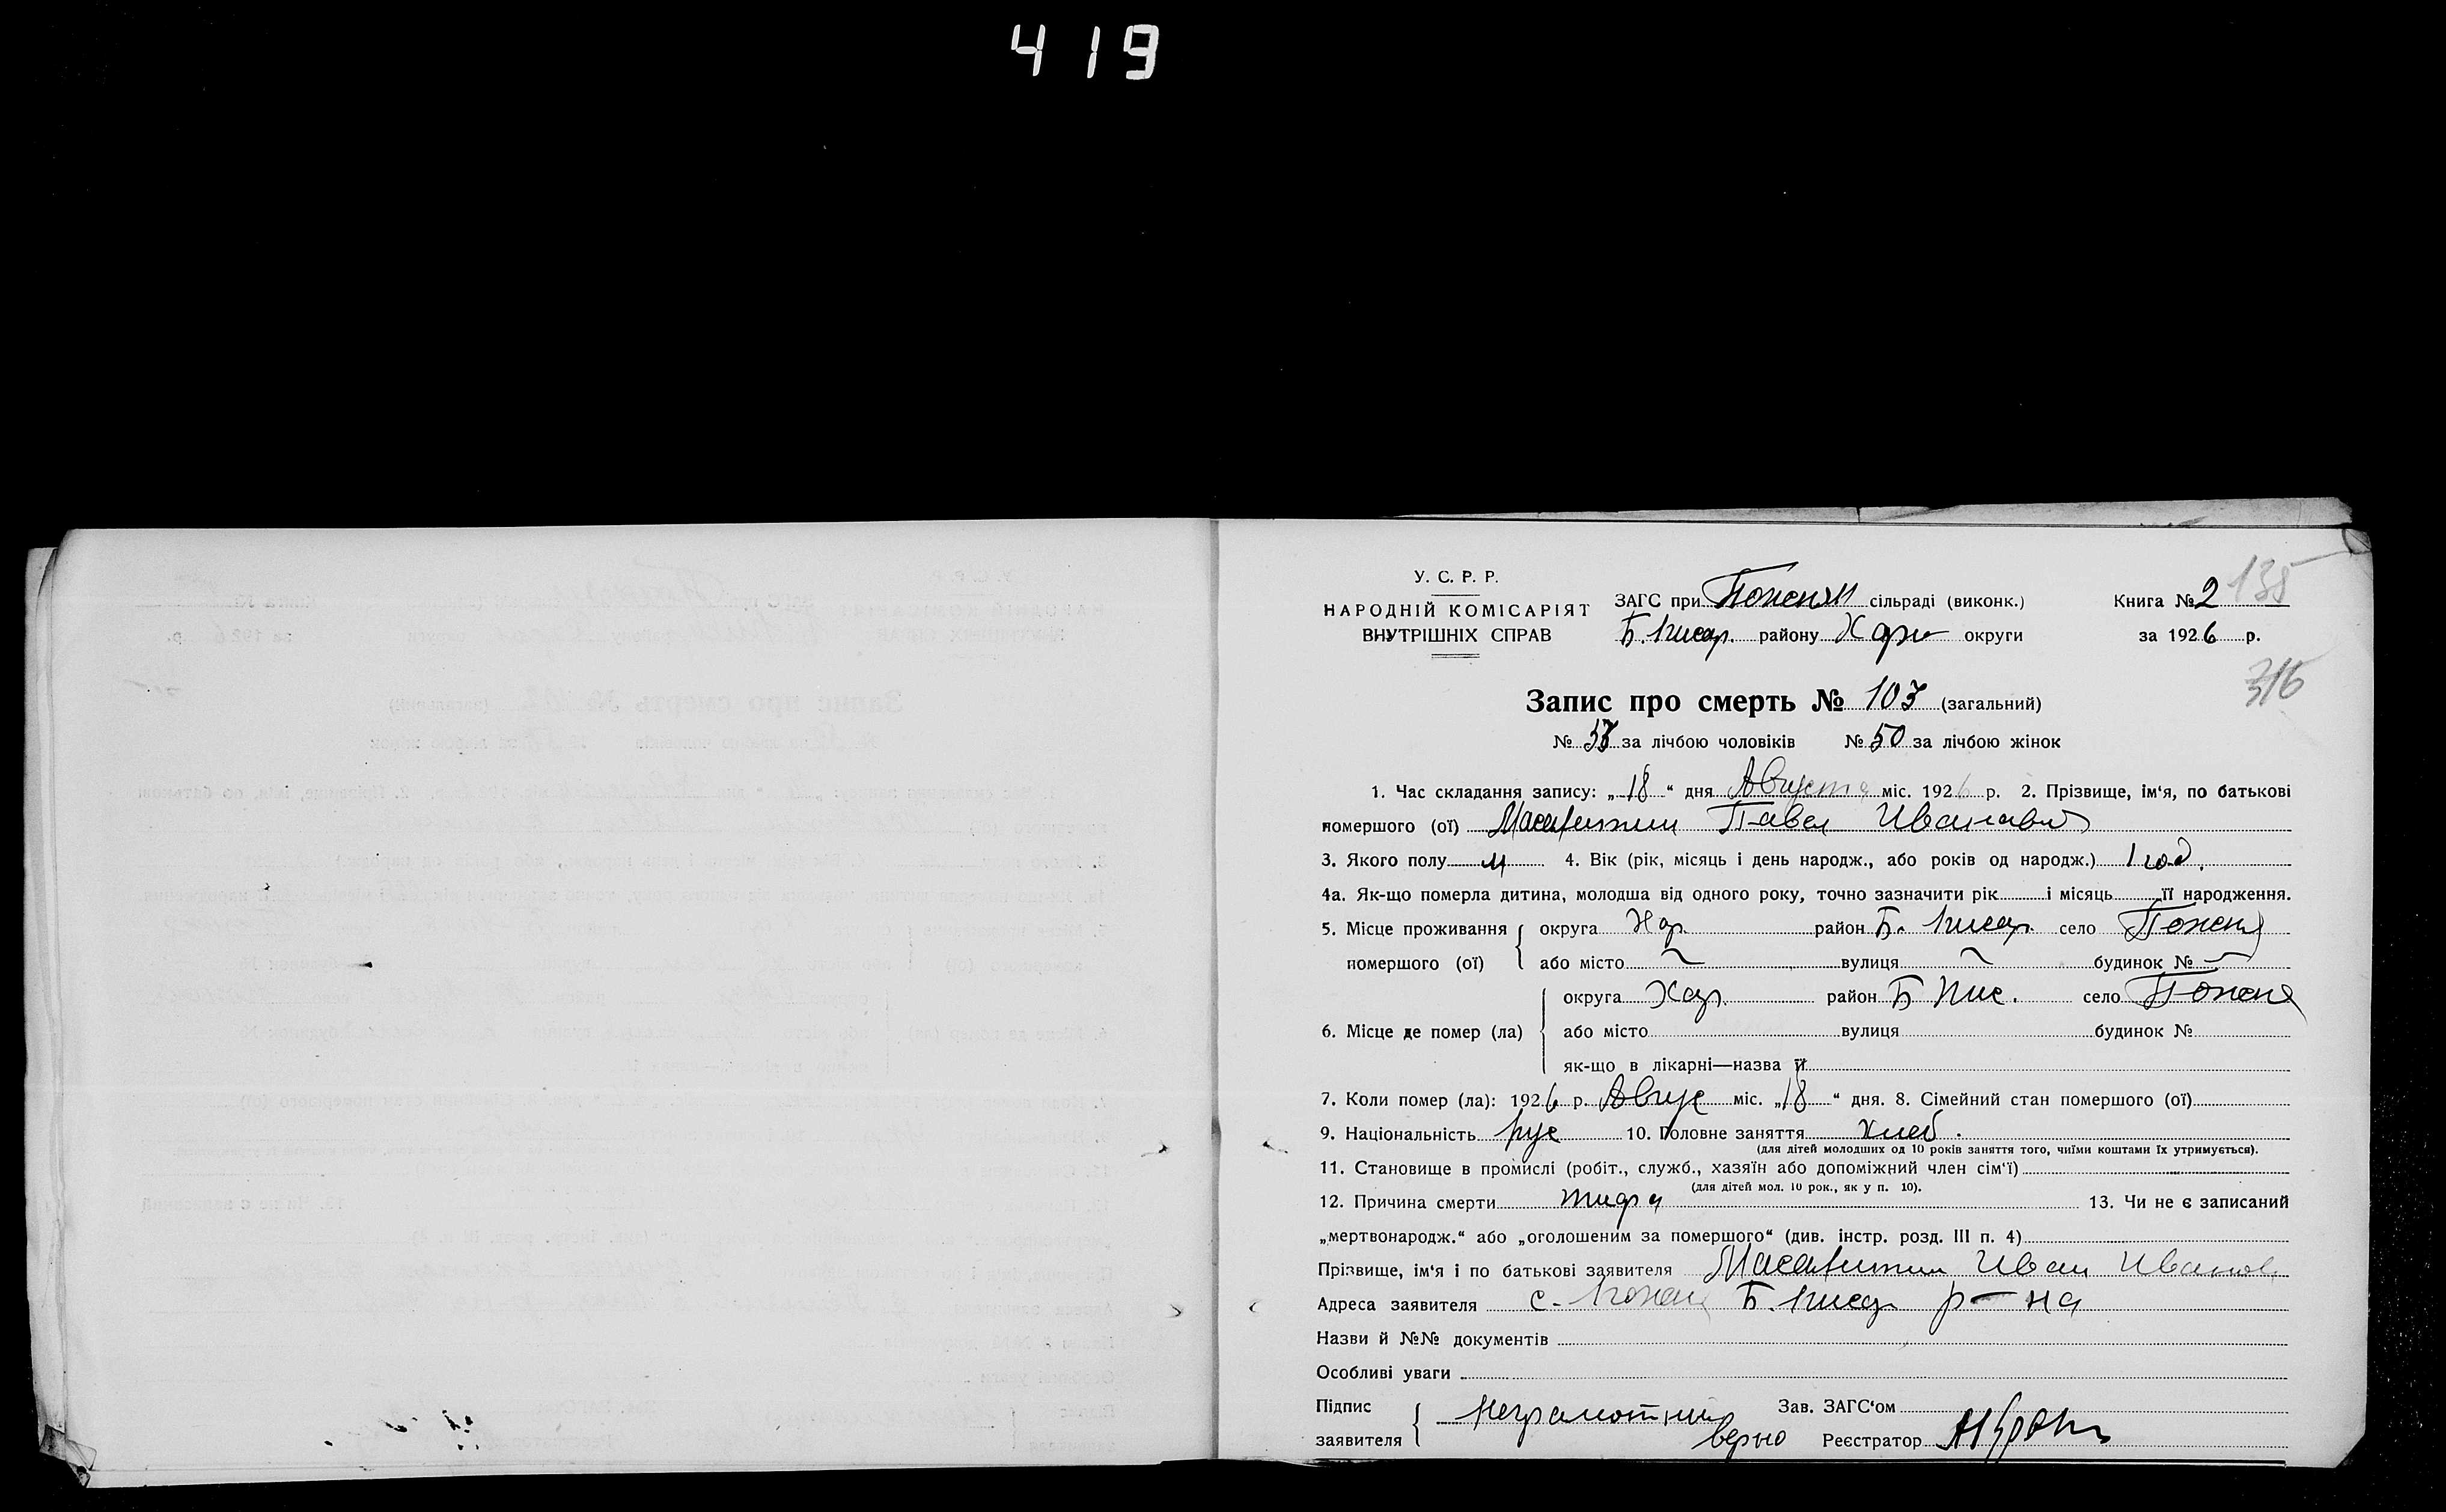 419
135
У. С. Р. Р.
НАРОДНІЙ КОМІСАРІЯТ
ВНУТРІШНІХ СПРАВ
ЗАГС при Поженян сільраді (виконк.)
Б. Писар. району Харк округи
Книга № 2
за 1926 р.
316
Запис про смерть № 103 (загальний)
№ 53 за лічбою чоловіків № 50 за лічбою жінок
1. Час складання запису: „18“ дня Августа міс. 1926 р. 2. Прізвище, ім‘я, по батькові
помершого (ої) Павел Иванович
3. Якого полу м 4. Вік (рік, місяць і день народж., або років од народж.) 1 год.
4а. Як-що померла дитина, молодша від одного року, точно зазначити рік і місяць її народження.
5. Місце проживання помершого (ої) округа Хар. район Б. Писар. село Поженя
або місто вулиця будинок № —
6. Місце де помер (ла) округа Хар. район Б Пис. село Поженя
або місто вулиця будинок №
як-що в лікарні—назва її
7. Коли помер (ла): 1926 р. Авгус міс. „18“ дня. 8. Сімейний стан помершого (ої)
9. Національність рус 10. Головне заняття хлеб.
(для дітей молодших од 10 років заняття того, чиїми коштами їх утримується).
11. Становище в промислі (робіт., служб., хазяїн або допоміжний член сім‘ї)
(для дітей мол. 10 рок., як у п. 10).
12. Причина смерти 13. Чи не є записаний
„мертвонародж.“ або „оголошеним за помершого“ (див. інстр. розд. III п. 4)
Прізвище, ім‘я і по батькові заявителя Иван Иванов
Адреса заявителя с. Поженя Б. Писар р-на
Назви й №№ документів
Особливі уваги
Підпис заявителя Неграмотный Зав. ЗАГС‘ом
верно Реєстратор